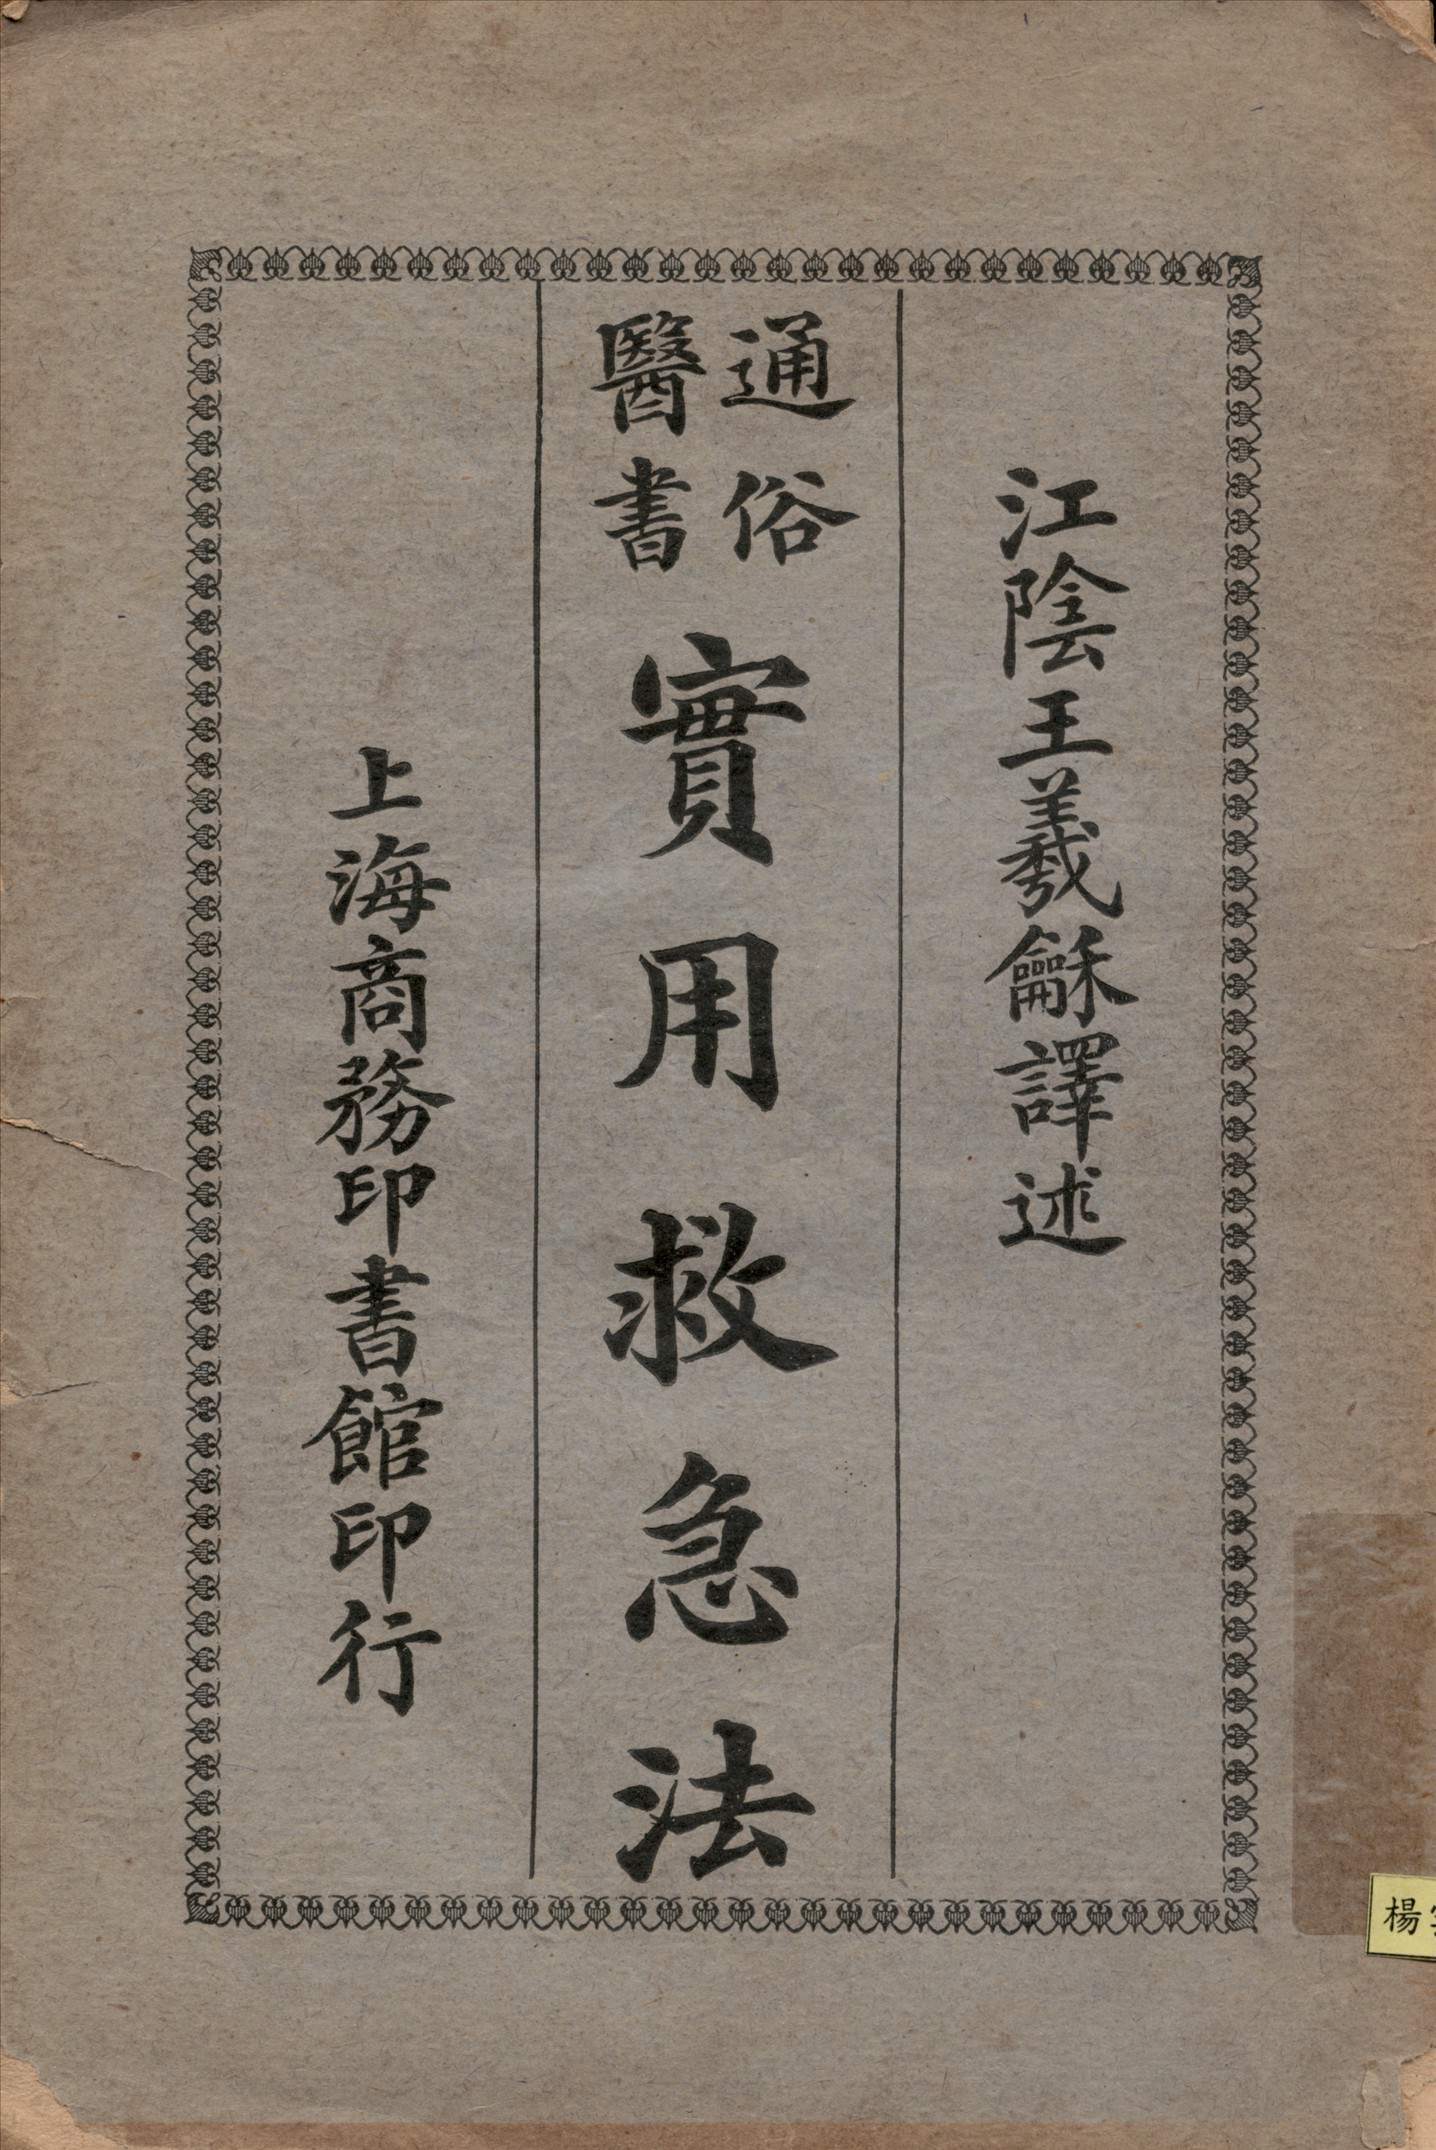 江陰王羲龢譯述
通俗
醫書
實用救急法
上海商務印書館印行
楊